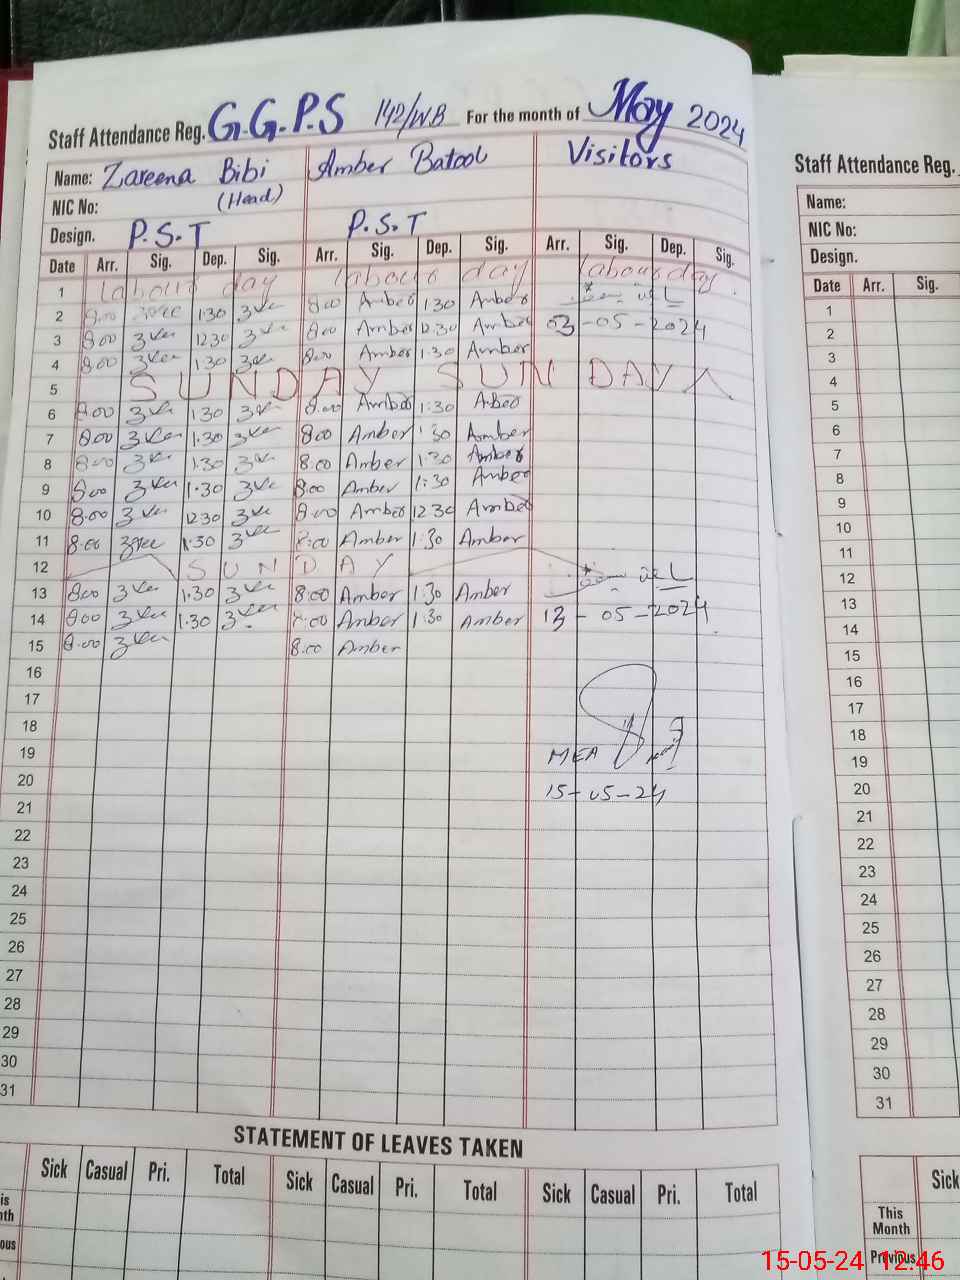 Staff Attendance Reg. G.G.P.S 142/WB For the month of May 2024
Name: Zareena Bibi Amber Batool Visitors
NIC No: (Head)
Design. P.S.T P.S.T
Date Arr. Sig. Dep. Sig. Arr. Sig. Dep. Sig. Arr. Sig. Dep. Sig.
1 labour day labour day labour day
2 8:00 1:30 8:00 Amber 1:30 Amber
3 8:00 12:30 8:00 Amber 12:30 Amber 03-05-2024
4 8:00 1:30 8:00 Amber 1:30 Amber
5 SUNDAY SUNDAY
6 8:00 1:30 8:00 Amber 1:30 Amber
7 8:00 1:30 8:00 Amber 1:30 Amber
8 8:00 1:30 8:00 Amber 1:30 Amber
9 8:00 1:30 8:00 Amber 1:30 Amber
10 8:00 12:30 8:00 Amber 12:30 Amber
11 8:00 1:30 8:00 Amber 1:30 Amber
12 SUNDAY
13 8:00 1:30 8:00 Amber 1:30 Amber
14 8:00 1:30 8:00 Amber 1:30 Amber 13-05-2024
15 8:00 8:00 Amber
16
17
18
19 MEA
20 15-05-24
21
22
23
24
25
26
27
28
29
30
31
STATEMENT OF LEAVES TAKEN
Sick Casual Pri. Total Sick Casual Pri. Total Sick Casual Pri. Total
Staff Attendance Reg.
Name:
NIC No:
Design.
Date Arr. Sig.
1
2
3
4
5
6
7
8
9
10
11
12
13
14
15
16
17
18
19
20
21
22
23
24
25
26
27
28
29
30
31
Sick
This
Month
Previous
15-05-24 12:46